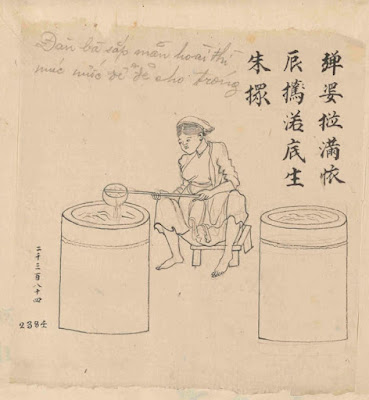 Đàn bà sắp mãn hoài thì
múc nước để đẻ cho tróng
弹婆拉滿
辰渃底生
朱
二千三百八十四
2384